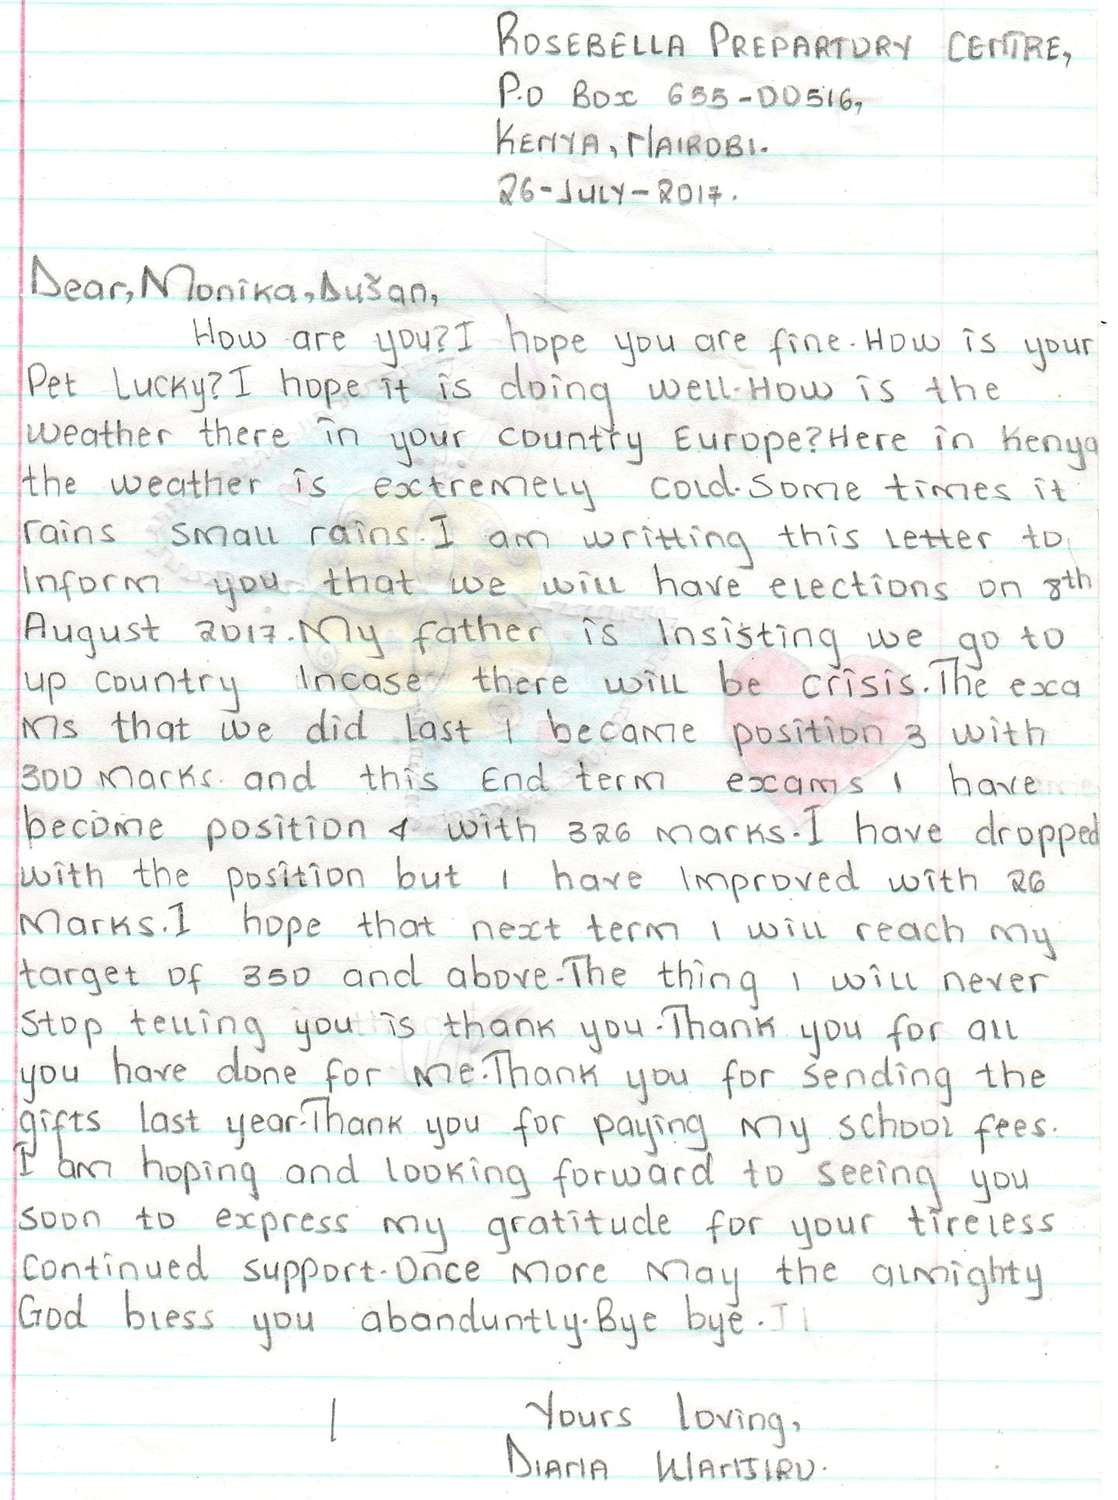 ROSEBELLA PREPARTORY CENTRE,
P.O BOX 655-00516,
KENYA, NAIROBI.
26-JULY-2017.
Dear, Monika, Dušan,
How are you? I hope you are fine. How is your
Pet Lucky? I hope it is doing well. How is the
weather there in your country Europe? Here in Kenya
the weather is extremely cold. Some times it
rains small rains. I am writting this letter to
inform you that we will have elections on 8th
August 2017. My father is insisting we go to
up country incase there will be crisis. The exa
ms that we did last I became position 3 with
300 marks. and this End term exams I have
become position 4 with 326 marks. I have dropped
with the position but I have improved with 26
marks. I hope that next term I will reach my
target of 350 and above. The thing I will never
stop telling you is thank you. Thank you for all
you have done for me. Thank you for sending the
gifts last year. Thank you for paying my school fees.
I am hoping and looking forward to seeing you
soon to express my gratitude for your tireless
continued support. Once more may the almighty
God bless you abanduntly. Bye bye.
Yours loving,
DIANA WANJIRU.